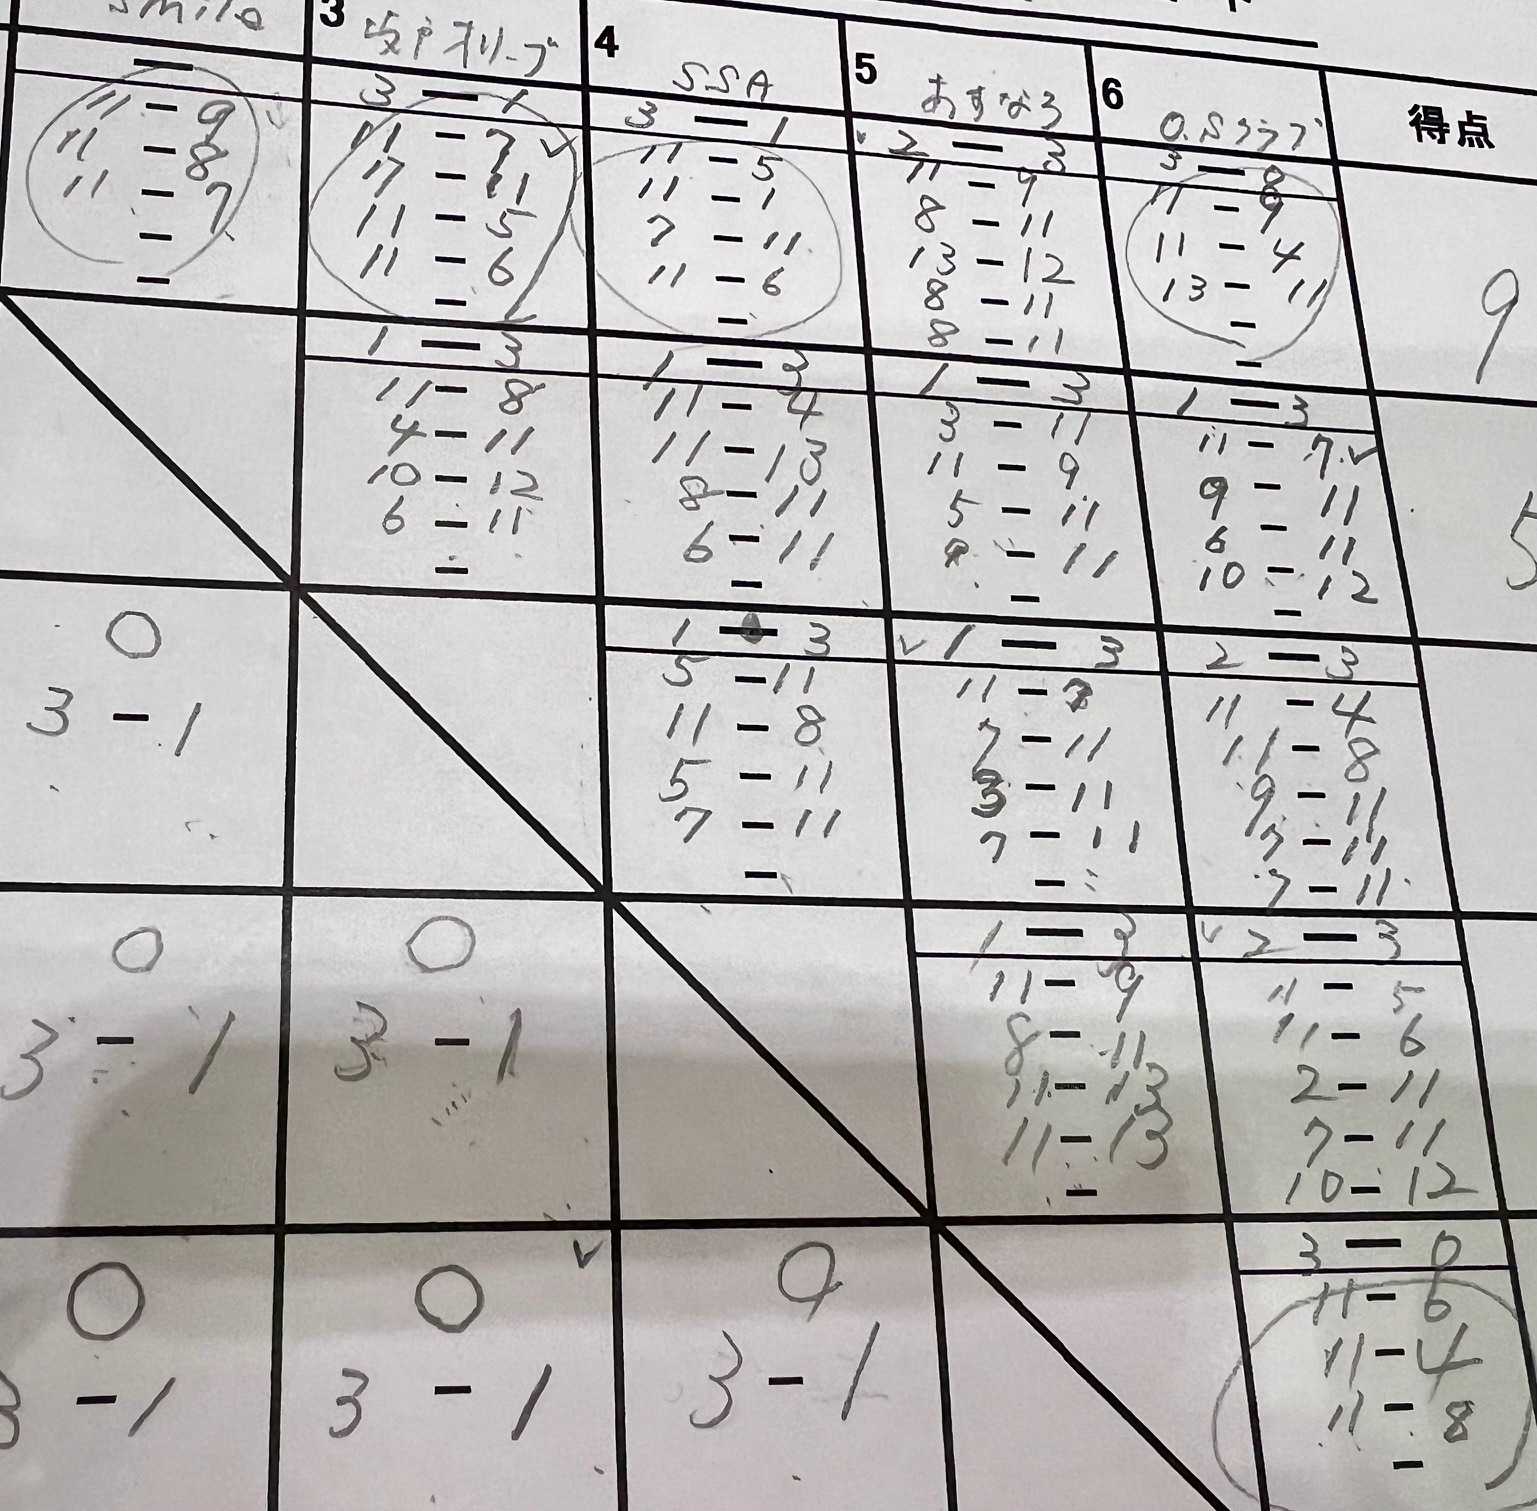 smile
3
坂戸オリーブ
4
SSA
5
あすなろ
6
O.Sクラブ
得点
11 - 9
11 - 8
11 - 7
-
-
3 - 1
11 - 7
17 - 11
11 - 5
11 - 6
-
3 - 1
11 - 5
11 - 1
7 - 11
11 - 6
-
2 - 3
11 - 9
8 - 11
13 - 12
8 - 11
8 - 11
3 - 0
11 - 9
11 - 4
13 - 11
-
-
9
1 - 3
11 - 8
4 - 11
10 - 12
6 - 11
-
1 - 3
11 - 4
11 - 13
8 - 11
6 - 11
-
1 - 3
3 - 11
11 - 9
5 - 11
9 - 11
-
1 - 3
11 - 7
9 - 11
6 - 11
10 - 12
-
5
○
3 - 1
1 - 3
5 - 11
11 - 8
5 - 11
7 - 11
-
1 - 3
11 - 7
7 - 11
3 - 11
7 - 11
-
2 - 3
11 - 4
11 - 8
9 - 11
7 - 11
7 - 11
○
3 - 1
○
3 - 1
1 - 3
11 - 9
8 - 11
11 - 13
11 - 13
-
2 - 3
11 - 5
11 - 6
2 - 11
7 - 11
10 - 12
○
3 - 1
○
3 - 1
○
3 - 1
3 - 0
11 - 6
11 - 4
11 - 8
-